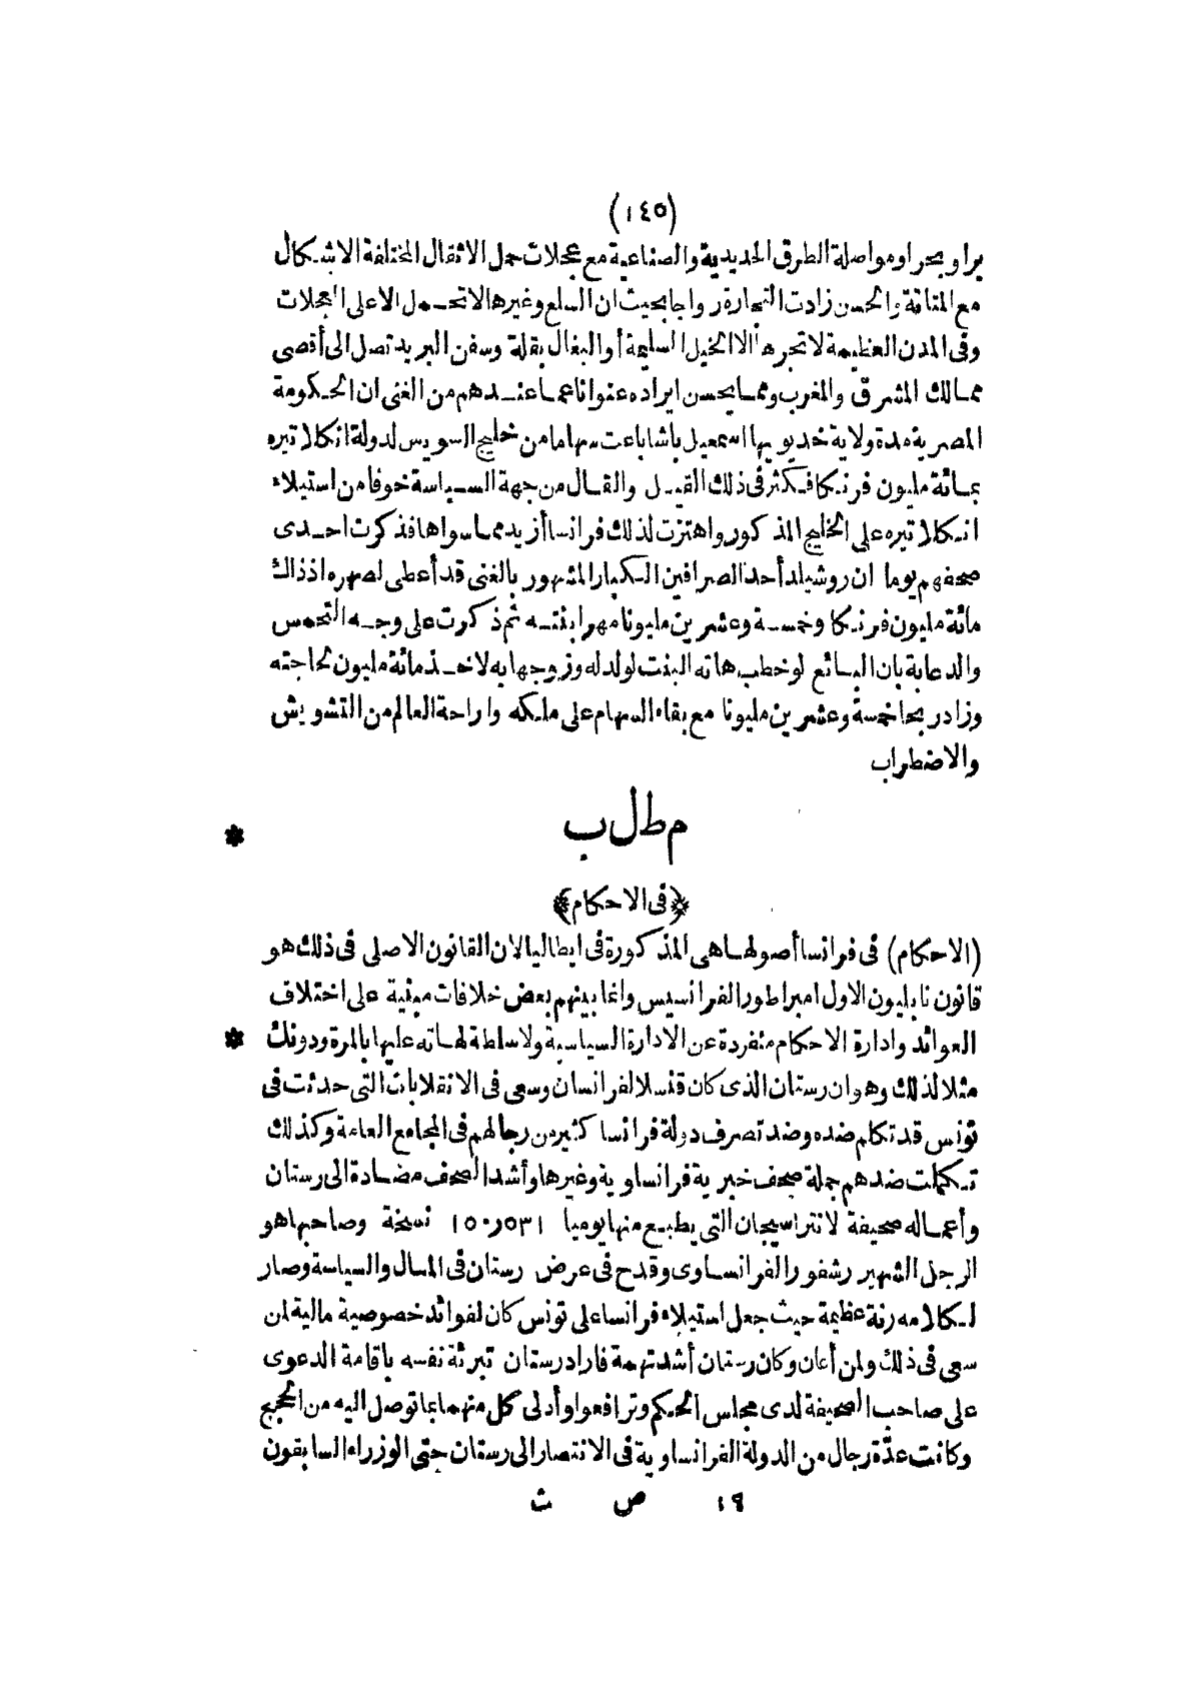 (١٤٥)
برا وبحرا ومواصلة الطرق الحديدية والصناعية مع عجلات حمل الاثقال المختلفة الاشكال
مع المتانة والحسن زادت التجارة رواجا بحيث ان السلع وغيرها لا تحمل الا على العجلات
وفى المدن العظيمة لا تجرها الا الخيل السليمة أو البغال بقلة وسفن البريد تصل الى أقصى
ممالك المشرق والمغرب ومما يحسن ايراده عنوانا عما عندهم من الغنى ان الحكومة
المصرية مدة ولاية خديويها اسمعيل باشا باعت سهاما من خليج السويس لدولة انكلاتيره
بمائة مليون فرنكا فكثر فى ذلك القيل والقال من جهة السياسة خوفا من استيلاء
انكلاتيره على الخليج المذكور واهتزت لذلك فرانسا أزيد مما سواها فذكرت احدى
صحفهم يوما ان روشيلد أحد الصرافين الكبار المشهور بالغنى قد أعطى لصهره اذ ذاك
مائة مليون فرنكا وخمسة وعشرين مليونا مهرا بنته ثم ذكرت على وجه التحمس
والدعابة بان البائع لو خطب هاته البنت لولده وزوجها به لاخذ مائة مليون لحاجته
وزاد ربحا خمسة وعشرين مليونا مع بقاء السهام على ملكه واراحة العالم من التشويش
والاضطراب
مطلب *
﴿فى الاحكام﴾
(الاحكام) فى فرانسا أصولها هى المذكورة فى ايطاليا لان القانون الاصلى فى ذلك هو
قانون نابليون الاول امبراطور الفرانسيس وانما بينهم بعض خلافات مبنية على اختلاف
العوائد وادارة الاحكام منفردة عن الادارة السياسية ولا سلطة لهاته عليها بالمرة ودونك *
مثلا لذلك وهو ان رستان الذى كان قنسلا لفرانسا وسعى فى الانقلابات التى حدثت فى
تونس قد تكلم ضده وضد تصرف دولة فرانسا كثير من رجالهم فى المجامع العامة وكذلك
تكلمت ضدهم جملة صحف خبرية فرانساوية وغيرها وأشد الصحف مضادة الى رستان
وأعماله صحيفة لانتراسيجان التى يطبع منها يوميا ١٥٠٫٥٣١ نسخة وصاحبها هو
الرجل الشهير رشفور الفرانساوى وقدح فى عرض رستان فى المال والسياسة وصار
لكلامه رنة عظيمة حيث جعل استيلاء فرانسا على تونس كان لفوائد خصوصية مالية لمن
سعى فى ذلك ولمن أعان وكان رستان أشد تهمة فاراد رستان تبرئة نفسه باقامة الدعوى
على صاحب الصحيفة لدى مجلس الحكم وترافعوا وأدلى كل منهما بما توصل اليه من الحجج
وكانت عدّة رجال من الدولة الفرانساوية فى الانتصار الى رستان حتى الوزراء السابقون
١٩ ص ث